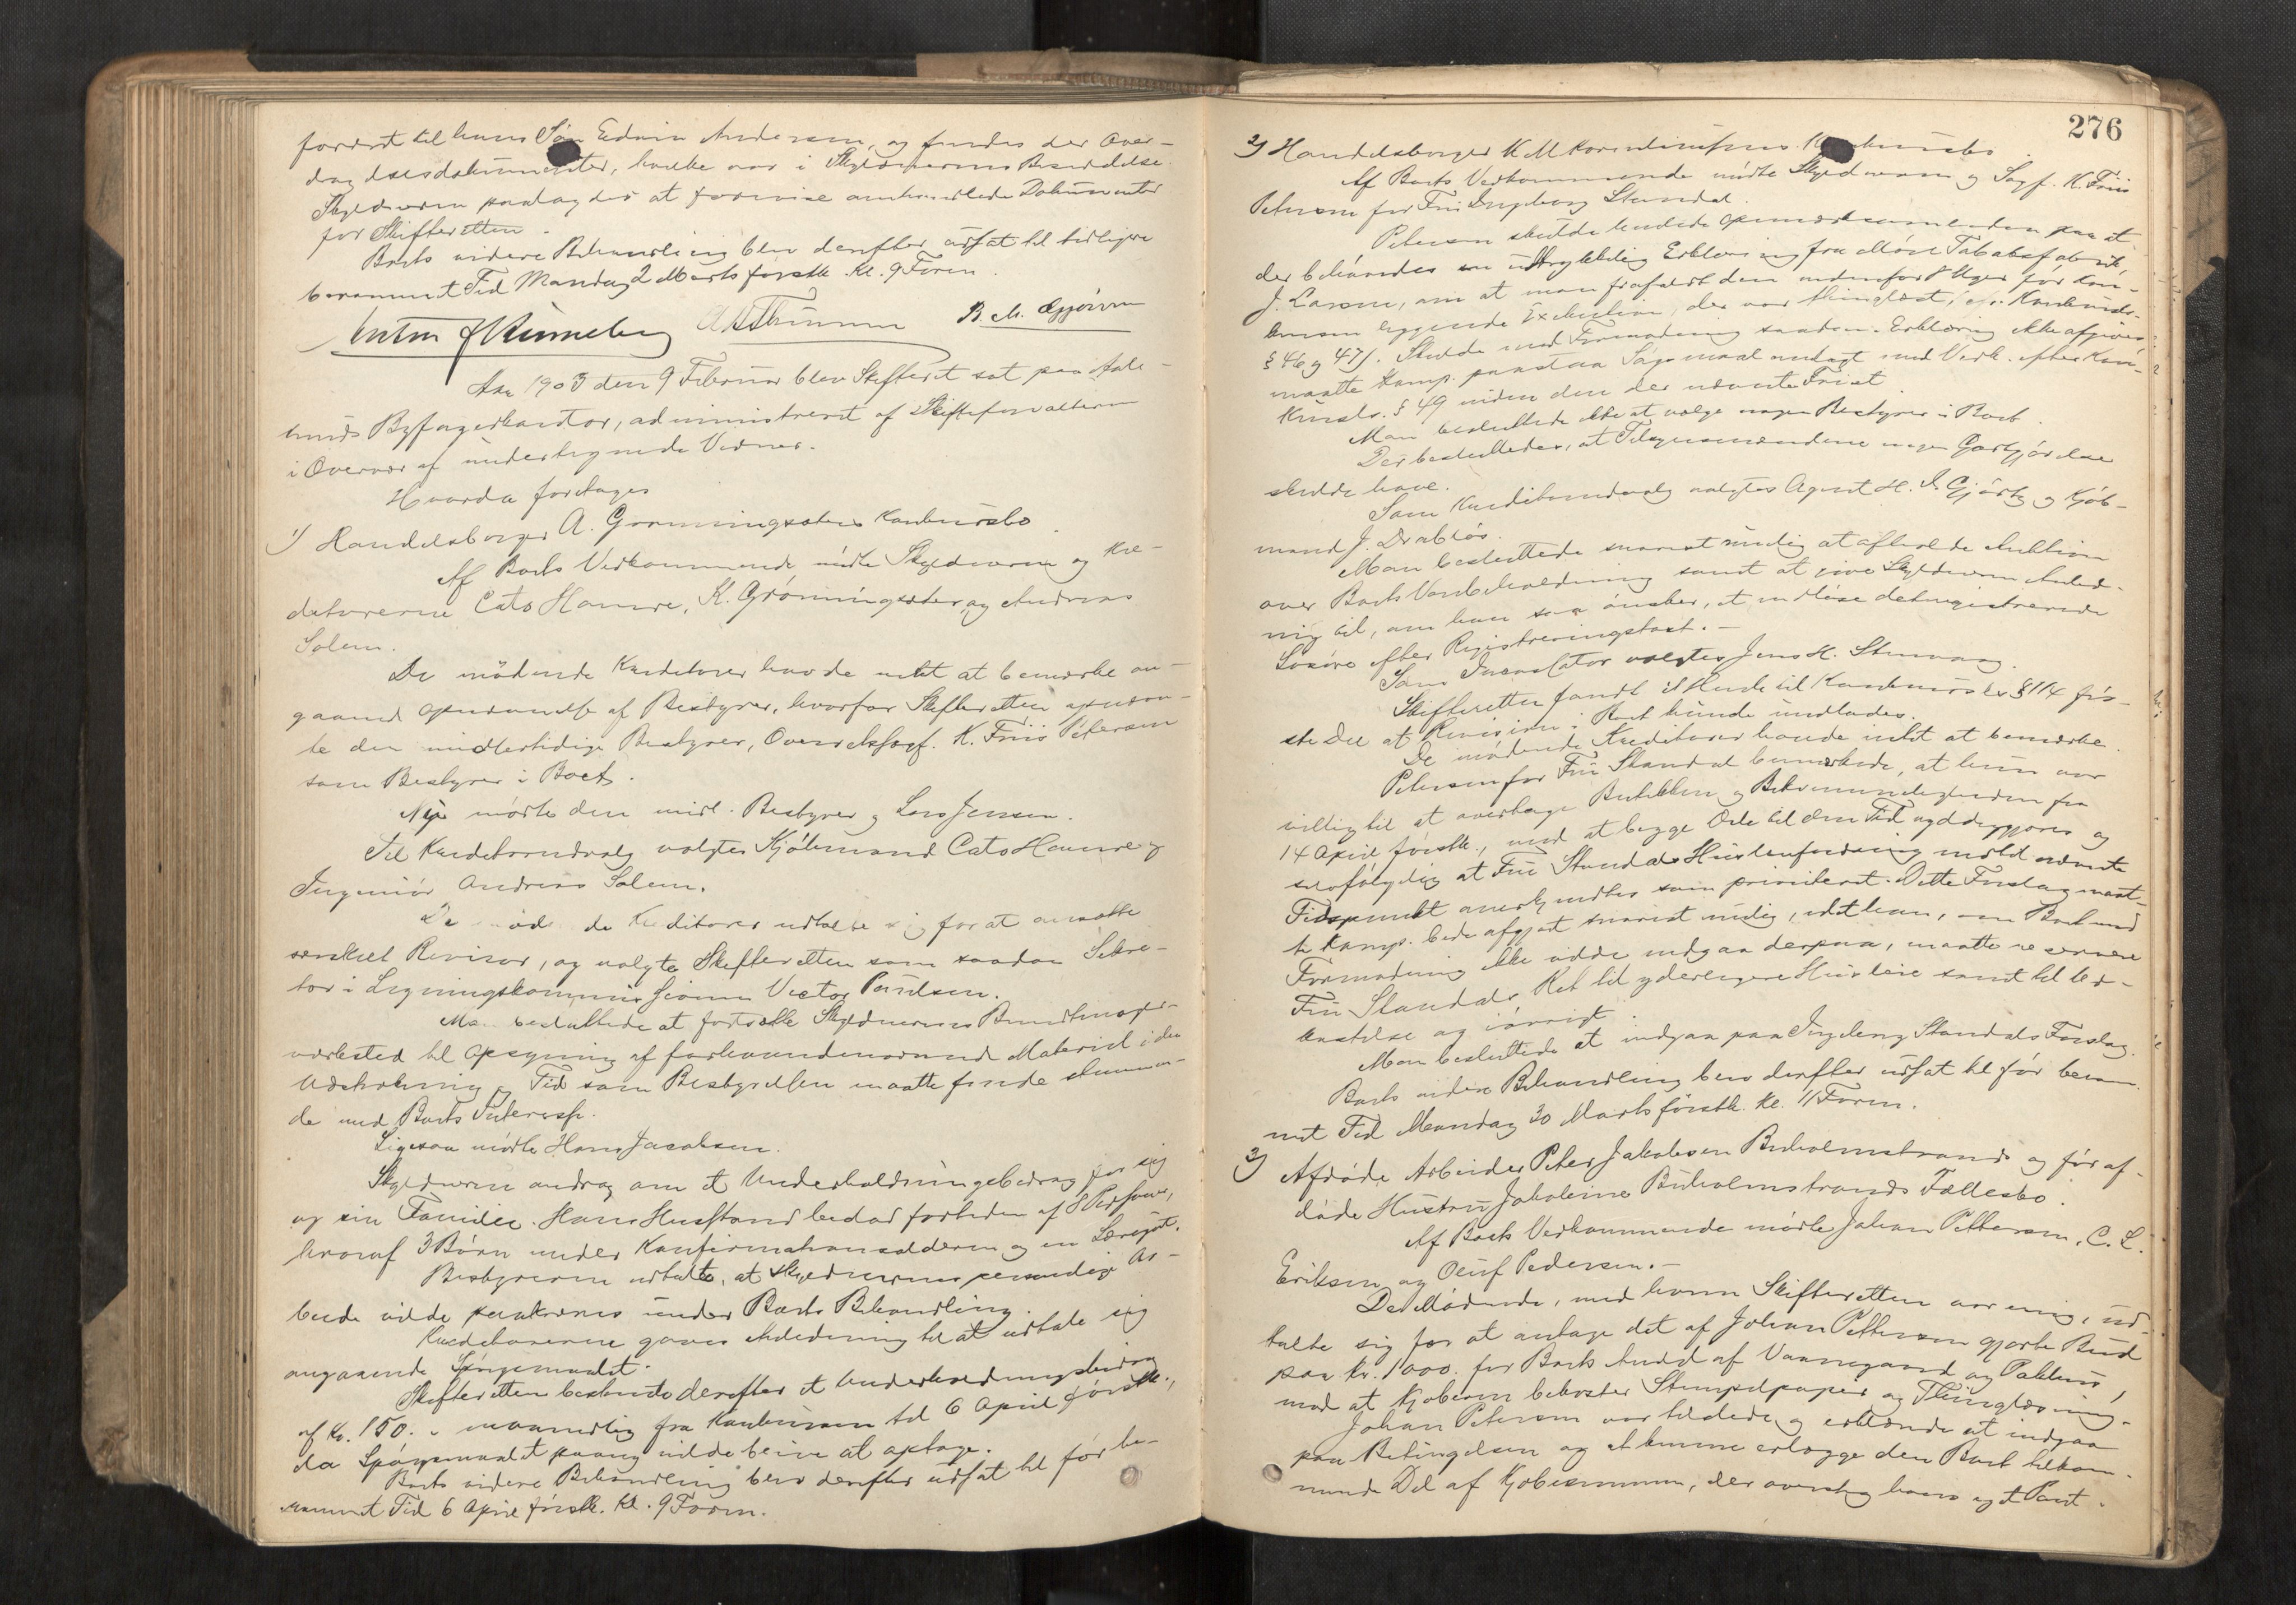 fordret til hans Søn Edvin Andersen, og fandes der Over-
dragelsesdokumenter, hvilke var i Skyldnerens Besiddelse.
Skyldneren paalagdes at forevise omhandlede Dokumenter
for Skifteretten.
Boets videre Behandling blev derefter udsat til tidligere
berammet Tid Mandag 2 Marts førstk. Kl. 9 Form.
Anton
Aar 1903 den 9 Februar blev Skifteret sat paa Aale-
sunds Byfogedkontor, administreret af Skifteforvalteren
i Overvær af undertegnede Vidner.
Hvorda foretages
1) Handelsborger A. Grønningsæters Konkursbo.
Af Boets Vedkommende mødte Skyldneren og Kre-
ditorerne Cato Hamre, K. Grønningsæter og Andreas
Solem.
De mødende Kreditorer havde intet at bemærke an-
gaaende Opnævnelse af Bestyrer, hvorfor Skifteretten opnævn-
te den midlertidige Bestyrer, Overretssagf. K. Friis Petersen
som Bestyrer i Boet.
Nu mødte den midl. Bestyrer og Lars Jensen.
Til Kreditorudvalg valgtes Kjøbmand Cato Hamre og
Ingeniør Andreas Solem.
De mødende Kreditorer udtalte sig for at ansætte
særskilt Revisor, og valgte Skifteretten som saadan Sekre-
tær i Ligningskommissionen Victor Paulsen.
Man besluttede at fortsætte Skyldnerens Bundtmager-
værksted til Opsyning af forhaandenværende Materiel i den
Udstrækning og Tid som Bestyrelsen maatte finde stemmen-
de med Boets Interesse.
Ligesaa mødte Hans Jacobsen.
Skyldneren androg om et Underholdningsbidrag for sig
og sin Familie. Hans Husstand bestod forhen af 8 Personer,
hvoraf 3 Børn under Konfirmationsalderen og en Læregut.
Bestyreren udtalte, at Skyldnerens personlige Ar-
beide vilde paakræves under Boets Behandling.
Kreditorerne gaves Anledning til at udtale sig
angaaende Spørgsmaalet.
Skifteretten bestemte derefter et Underholdningsbidrag
af Kr. 150. - maanedlig fra Konkursen til 6 April førstk.,
da Spørgsmaalet paany vilde blive at optage.
Boets videre Behandling blev derefter udsat til før be-
rammet Tid 6 April førstk. Kl. 9 Form.
276
2) Handelsborger K M Korsnes Konkursbo.
Af Boets Vedkommende mødte Skyldneren og Sagf. K. Friis
Petersen for Fru Ingeborg Standal.
Petersen skulde henlede Opmærksomheden paa at
der behøvedes en udtrykkelig Erklæring fra Møre Tobaksfabrik
J. Larsen, om at man frafaldt den indenfor 8 Uger før Kon-
kursen liggende Exekution, der var thinglæst, cfr. Konkurslo-
§ 46 og 47. Skulde mod Formodning saadan Erklæring ikke afgives
maatte Komp. paastaa Søgsmaal anlagt med Virk. efter Kon-
kurslo. § 49 inden den der nævnte Frist.
Man besluttede ikke at vælge nogen Bestyrer i Boet.
Der besluttedes, at Tilsynsmændene ingen Godtgjørelse
skulde have.
Som Kreditorudvalg valgtes Agent H. I. Gjørtz og Kjøb-
mand J. Drabløs.
Man besluttede snarest mulig at afholde Auktion
over Boets Varebeholdning samt at give Skyldneren Anled-
ning til, om han saa ønsker, at indløse det registrerede
Løsøre efter Registreringstaxt. -
Som Incassator valgtes Jens H. Stenvaag.
Skifteretten fandt i Henh. til Konkurslov § 114 før-
ste Del at Revision i Boet kunde undlades.
De mødende Kreditorer havde intet at bemærke.
Petersen for Fru Standal bemærkede, at hun var
villig til at overtage Butikken og Bekvemmeligheden fra
14 April førstk., mod at begge Dele til den Tid ryddiggjøres og
selvfølgelig at Fru Standals Husleiefordring indtil nævnte
Tidspunkt anerkjendtes som prioriteret. Dette Forslag maat-
te Komp. bede afgjort snarest mulig, idet han, om Boet mod
Formodning ikke vilde indgaa derpaa, maatte reservere
Fru Standals Ret til yderligere Husleie samt til Ud-
kastelse og iøvrigt.
Man besluttede at indgaa paa Ingeborg Standals Forslag.
Boets videre Behandling blev derefter udsat til før beram-
met Tid Mandag 30 Marts førstk. Kl. 11 Form.
3) Afdøde Arbeider Peter Jakobsen Buholmstrands og før af-
døde Hustru Jakobine Buholmstrands Fællesbo.
Af Boets Vedkommende mødte Johan Pettersen, C. L.
Eriksen og Oluf Pedersen. -
De Mødende, med hvem Skifteretten var enig, ud-
talte sig for at antage det af Johan Pettersen gjorte Bud
paa Kr. 1000. for Boets Andel af Vaanegaard og Pakhus,
mod at Kjøberen bekoster Stempelpapir og Thinglæsning. -
Johan Petersen var tilstede og erklærede at indgaa
paa Betingelsen og at kunne erlægge den Boet tilkom-
mende Del af Kjøbesummen, der oversteg hans eget Part.